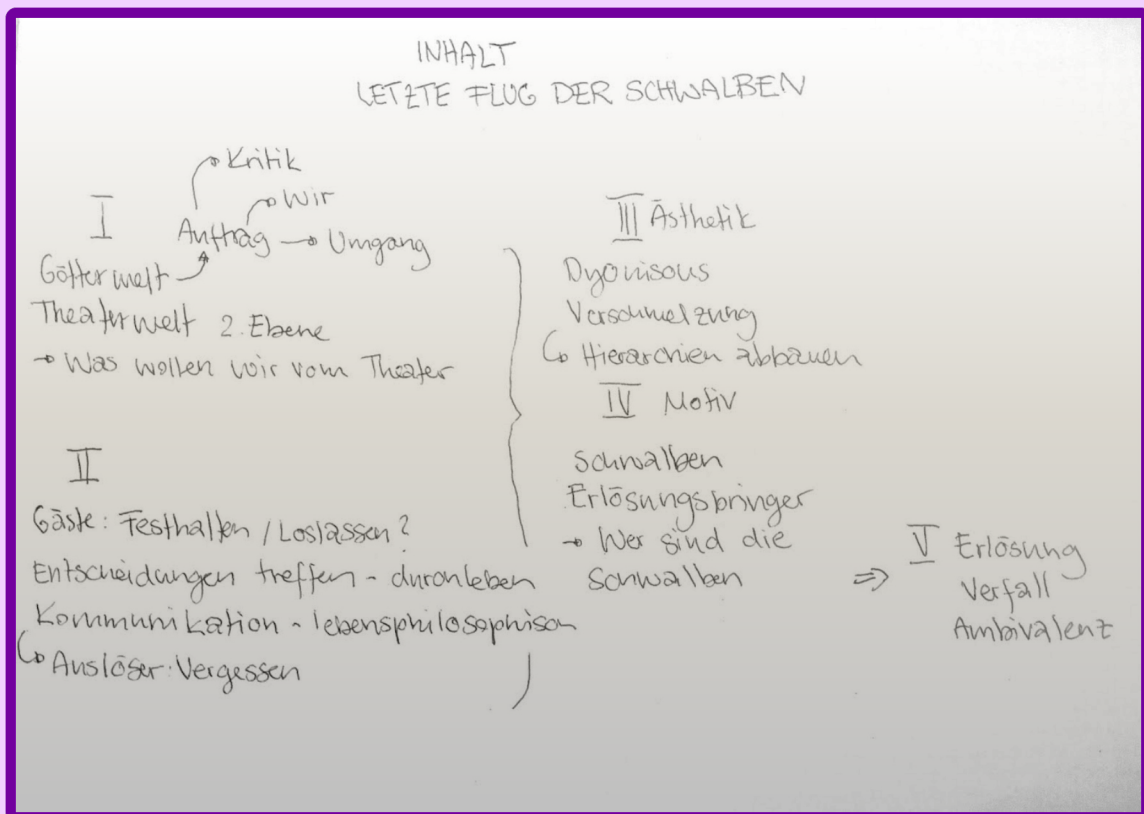 INHALT
LETZTE FLUG DER SCHWALBEN
I
Kritik
Wir
Auftrag → Umgang
Götterwelt
Theaterwelt 2. Ebene
→ Was wollen wir vom Theater
II
Gäste: Festhalten / Loslassen?
Entscheidungen treffen - durchleben
Kommunikation - lebensphilosophisch
↳ Auslöser: Vergessen
III Ästhetik
Dyonisous
Verschmelzung
↳ Hierarchien abbauen
IV Motiv
Schwalben
Erlösungsbringer
→ Wer sind die
Schwalben
⇒ V Erlösung
Verfall
Ambivalenz